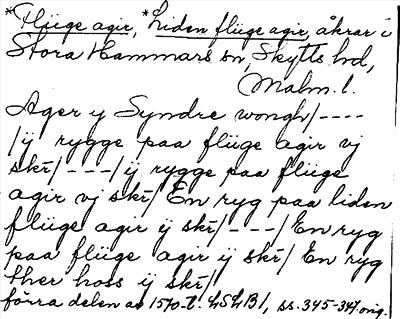 *Flüge agir, *Liden flüge agir, åkrar i
Stora Hammars sn, Skytts hd,
Malm. l.
Ager y Syndre wongh/----
/ÿ rygge paa flüge agir vj
skr̄/---/ÿ rygge paa flüge
agir vj skr̄/ En ryg paa liden
flüge agir ÿ skr̄/---/En ryg
paa flüge agir ÿ skr̄/ En ryg
ther hoss ÿ skr̄/
förra delen av 1570-t. LSLB1, ss. 345-347 orig.